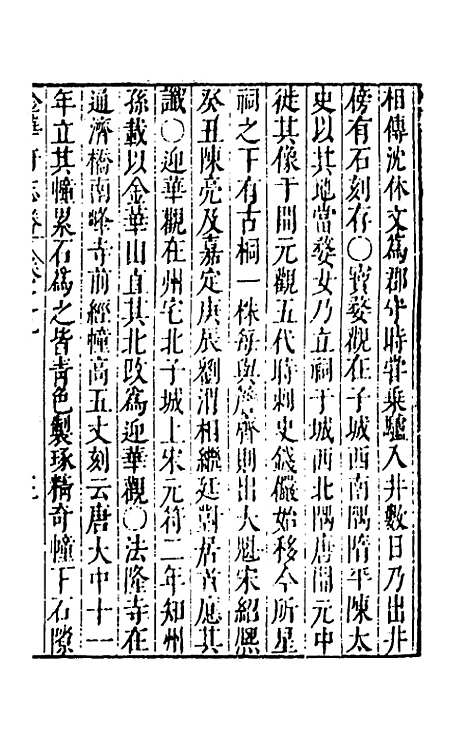 相傳沈休文爲郡守時嘗乘驢入井數日乃出井
傍有石刻存○寶婺觀在子城西南隅隋平陳太
史以其地當婺女乃立祠于城西北隅唐開元中
徙其像于開元觀五代時刺史錢儼始移今所星
祠之下有古桐一株每與簷齊則出大魁宋紹熈
癸丑陳亮及嘉定庚辰劉渭相繼廷對居首應其
讖○迎華觀在州宅北子城上宋元符二年知州
孫載以金華山直其北改爲迎華觀○法隆寺在
通濟橋南峰寺前經幢高五丈刻云唐大中十一
年立其幢累石爲之皆青色製琢精奇幢下石隙
金華府志卷